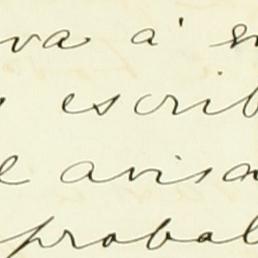 va á
escrib
avisa
probal